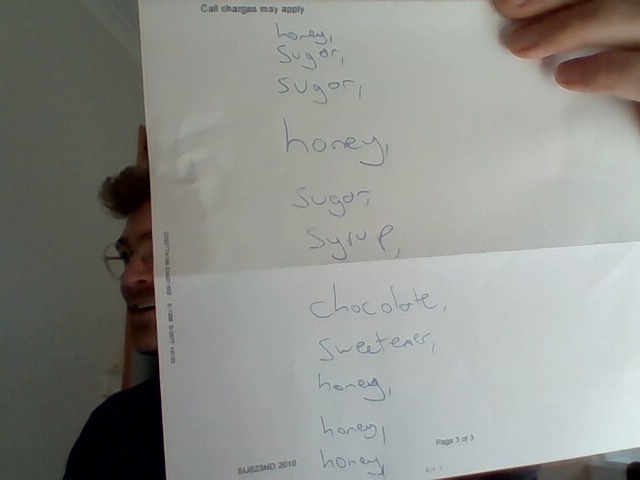 Call charges may apply
honey,
sugar,
sugar,
honey,
sugar,
syrup,
chocolate,
sweetener,
honey,
honey,
honey,
Page 3 of 3